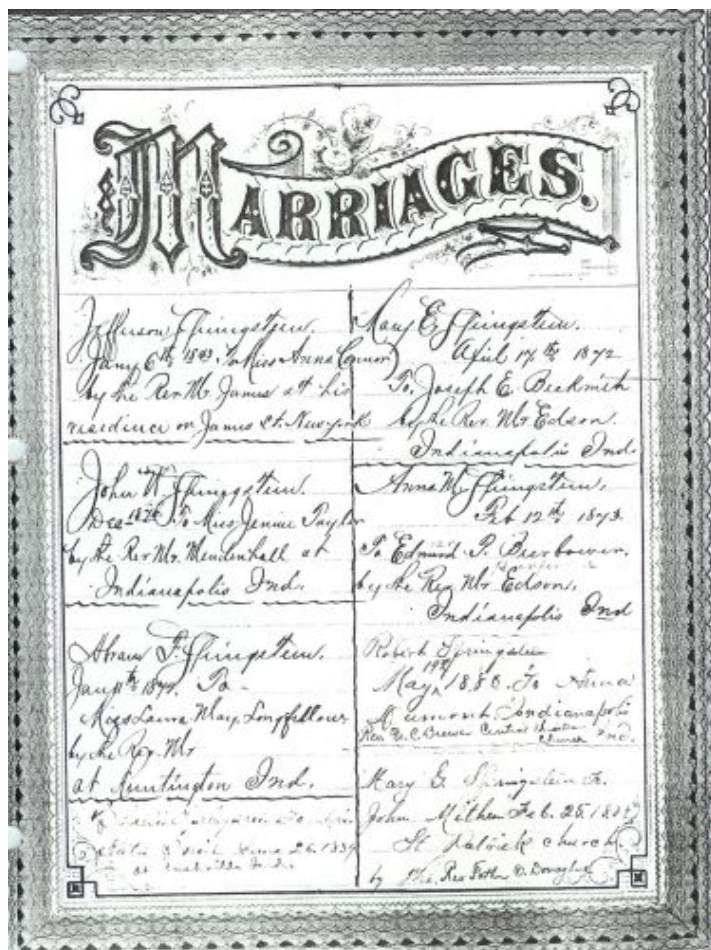 MARRIAGES.
Jefferson Springsteen.
Jany 6th 1843. To Miss Anna Connor
by the Rev Mr James at his
residence on James St. New york
John Springsteen.
Dec To Miss Jennie Taylor
by the Rev Mr. Mendenhall at
Indianapolis Ind.
Abram F. Springsteen.
Jany To
Miss Laura May Longfellow
by the Rev. Mr
at Huntington Ind.
June 26. 1839
at Ind.
Mary E. Springsteen.
April 17th 1872
To Joseph E. Beckwith
by the Rev. Mr Edson.
Indianapolis Ind.
Anna M. Springsteen.
Feb 12th 1873
To Edmund P. Bierbower.
by the Rev Mr Edson.
Indianapolis Ind
Robert Springsteen
19th
May 1880. To Anna
Indianapolis
Rev Brewer Central Church Ind.
Mary G. Springsteen to
John Feb. 25.
St Patrick church.
by The Rev Father O. Donaghue